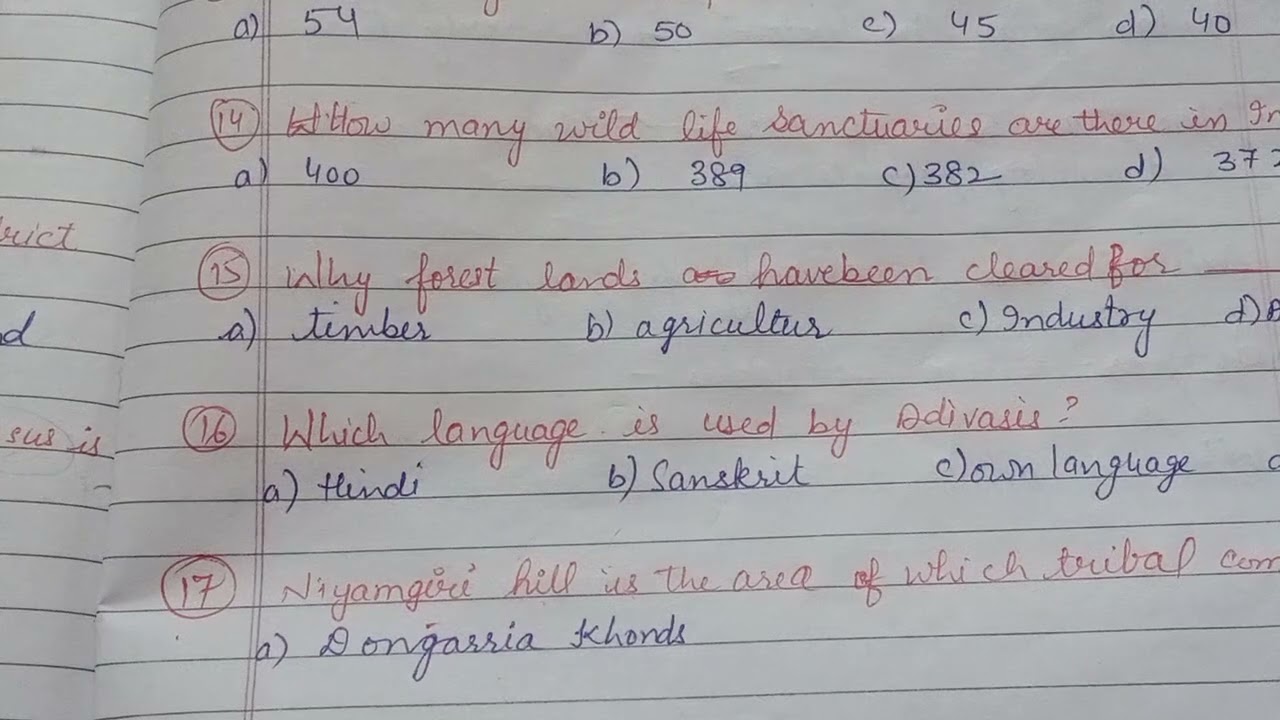 a) 54 b) 50 c) 45 d) 40
14 How many wild life sanctuaries are there in In
a) 400 b) 389 c) 382 d) 372
rict
15 Why forest lands havebeen cleared for
a) timber b) agricultur c) Industry d)
d
16 Which language is used by Adivasis?
sus is
a) Hindi b) Sanskrit c) own language
17 Niyamgiri hill is the area of which tribal com
a) Dongarria Khonds